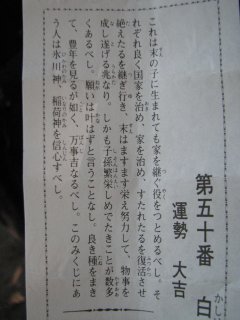 第五十番 白
かし
運勢 大吉
これは末の子に生まれても家を継ぐ役をつとめるべし。そ
れぞれ良く国家を治め、家を治め、すたれたるを復活させ
絶えたるを継ぎ行き、末はますます栄え努力して、物事を
成し遂げる兆なり。しかも子孫繁栄しめでたきことが数多
くあるべし。願いは叶はずと言うことなし。良き種をまき
て、豊年を見るが如く、万事吉なるべし。このみくじにあ
う人は氷川神、稲荷神を信心すべし。